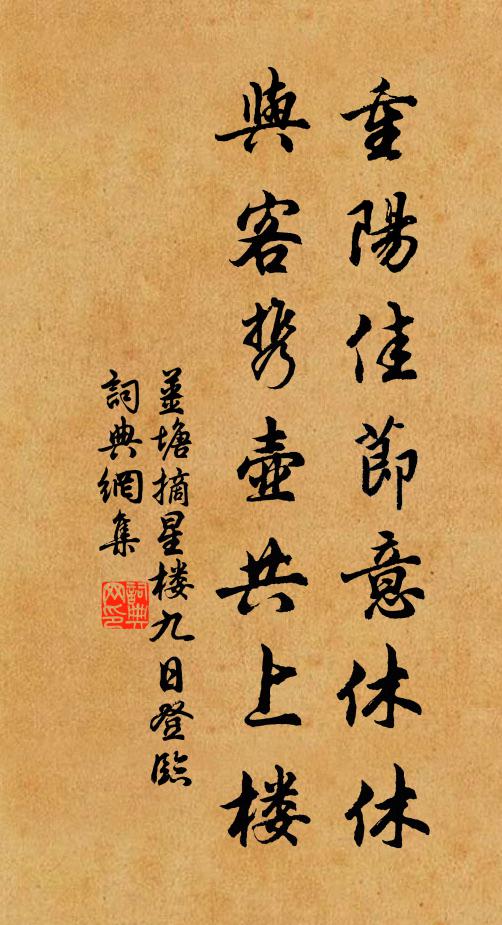 重陽佳節意休休
與客携壺共上楼
薑塘摘星楼九日登臨
詞典網集
詞典网印